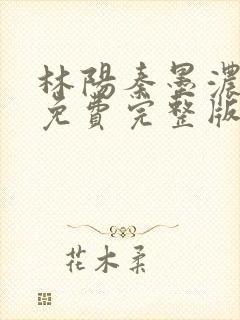 林陽秦墨濃
免費完整版
花木柔